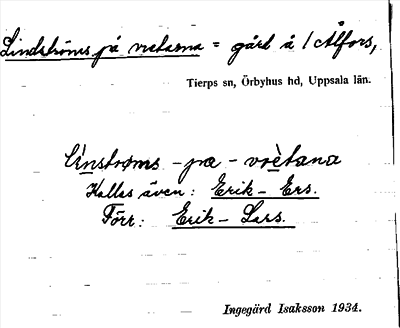 Lindströms på vretarna = gård å / Ålfors,
Tierps sn, Örbyhus hd, Uppsala län.
Linstroms - pa - vrètana
Kallas även: Erik - Ers.
Förr: Erik - Lars.
Ingegärd Isaksson 1934.